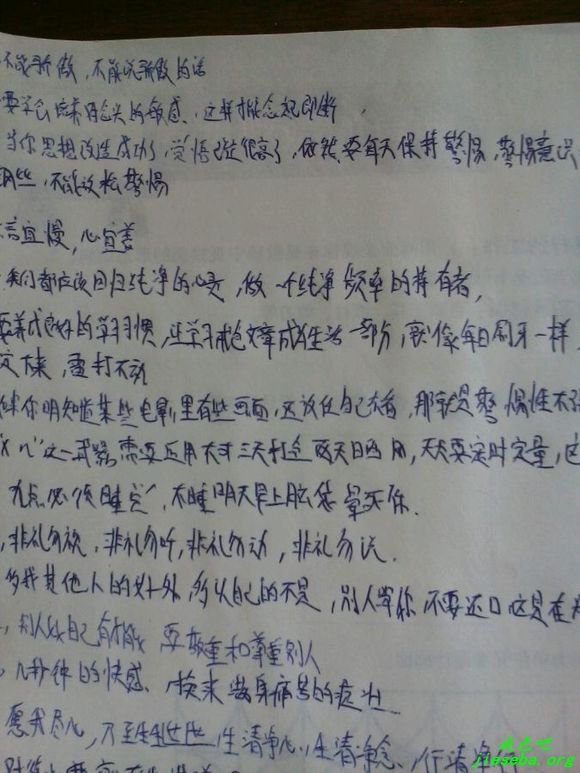 不能骄傲，不能说骄傲的话
要学会培养对念头的敏感、这样才能念起即断．
当你思想改造成功了，觉悟已经很高了，依然要每天保持警惕，警惕意识
不能放松警惕
言宜慢，心宜善
我们都应该回归纯净的心灵，做一个纯净频率的持有者，
要养成良好的学习习惯，让学习戒色文章成为生活一部分，就像每日刷牙一样，
雷打不动
你明知道某些电影里有些画面，还放任自己去看，那就是警惕性不强
这一武器需要应用 三天打鱼两天晒网，天天要定时定量，这
九点必须睡觉，不睡明天早上脑袋晕死你．
，非礼勿视，非礼勿听，非礼勿动，非礼勿说．
多找其他人的好处，多认自己的不是，别人 你，不要还口这是在
，别人比自己有 要敬重和尊重别人
几秒钟的快感、换来 身痛苦的症状
愿我尽心， 生清净心，生清净念、行清净行
jieseba.org